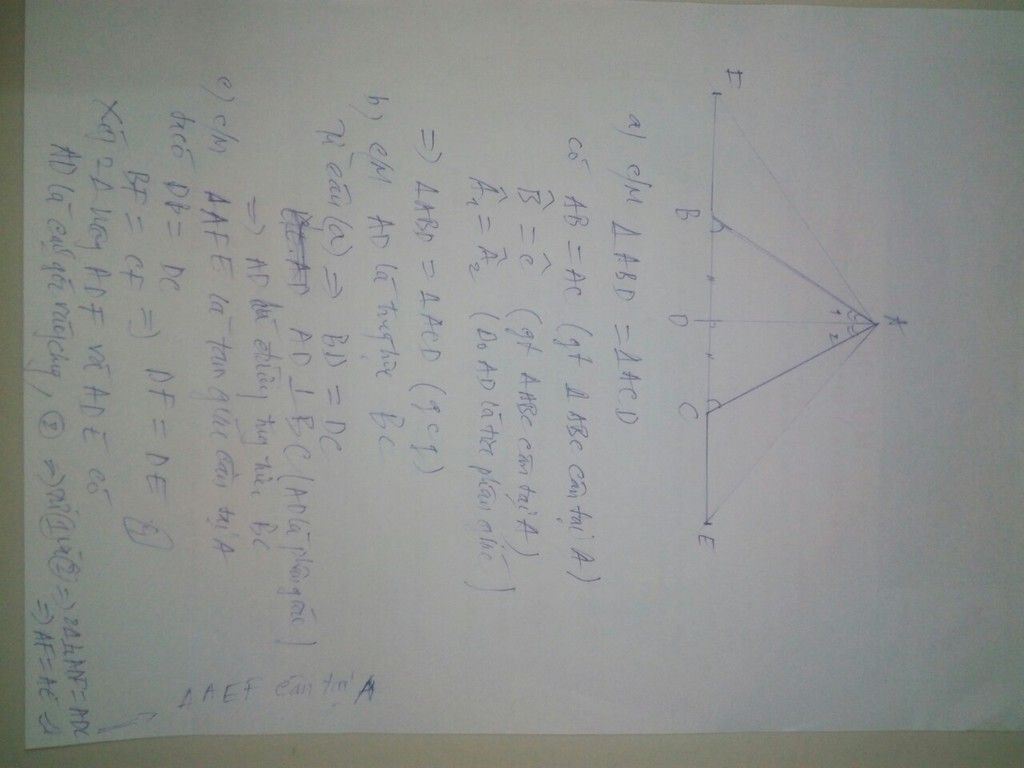 A
1 2
F B D C E
a) C/M Δ ABD = Δ ACD
có AB = AC (gt Δ ABC cân tại A)
B̂ = Ĉ (gt ΔABC cân tại A)
Â₁ = Â₂ (Do AD là tia phân giác)
=> Δ ABD = Δ ACD (g c g)
b) C/M AD là trung trực BC
Từ câu (a) => BD = DC
AD ⊥ BC (AD là phân giác)
=> AD là đường trung trực BC
c) c/m ΔAFE là tam giác cân tại A
ta có DB = DC
BF = CE => DF = DE (1)
Xét 2 Δ vuông ADF và ADE có
AD là cạnh góc vuông chung, (2) => từ (1) và (2) => 2Δ ADF = ADE
=> AF = AE =>
Δ AEF cân tại A